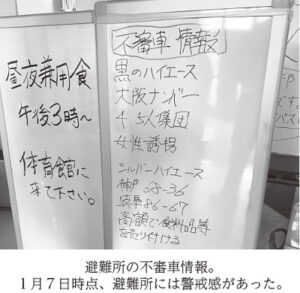 昼夜兼用食
午後3時〜
体育館に
来て下さい。
不審車情報
黒のハイエース
大阪ナンバー
4.5人集団
女性誘拐
シルバーハイエース
神戸 68-36
86-67
高額で食料品等
を売り付ける
避難所の不審車情報。
１月７日時点、避難所には警戒感があった。